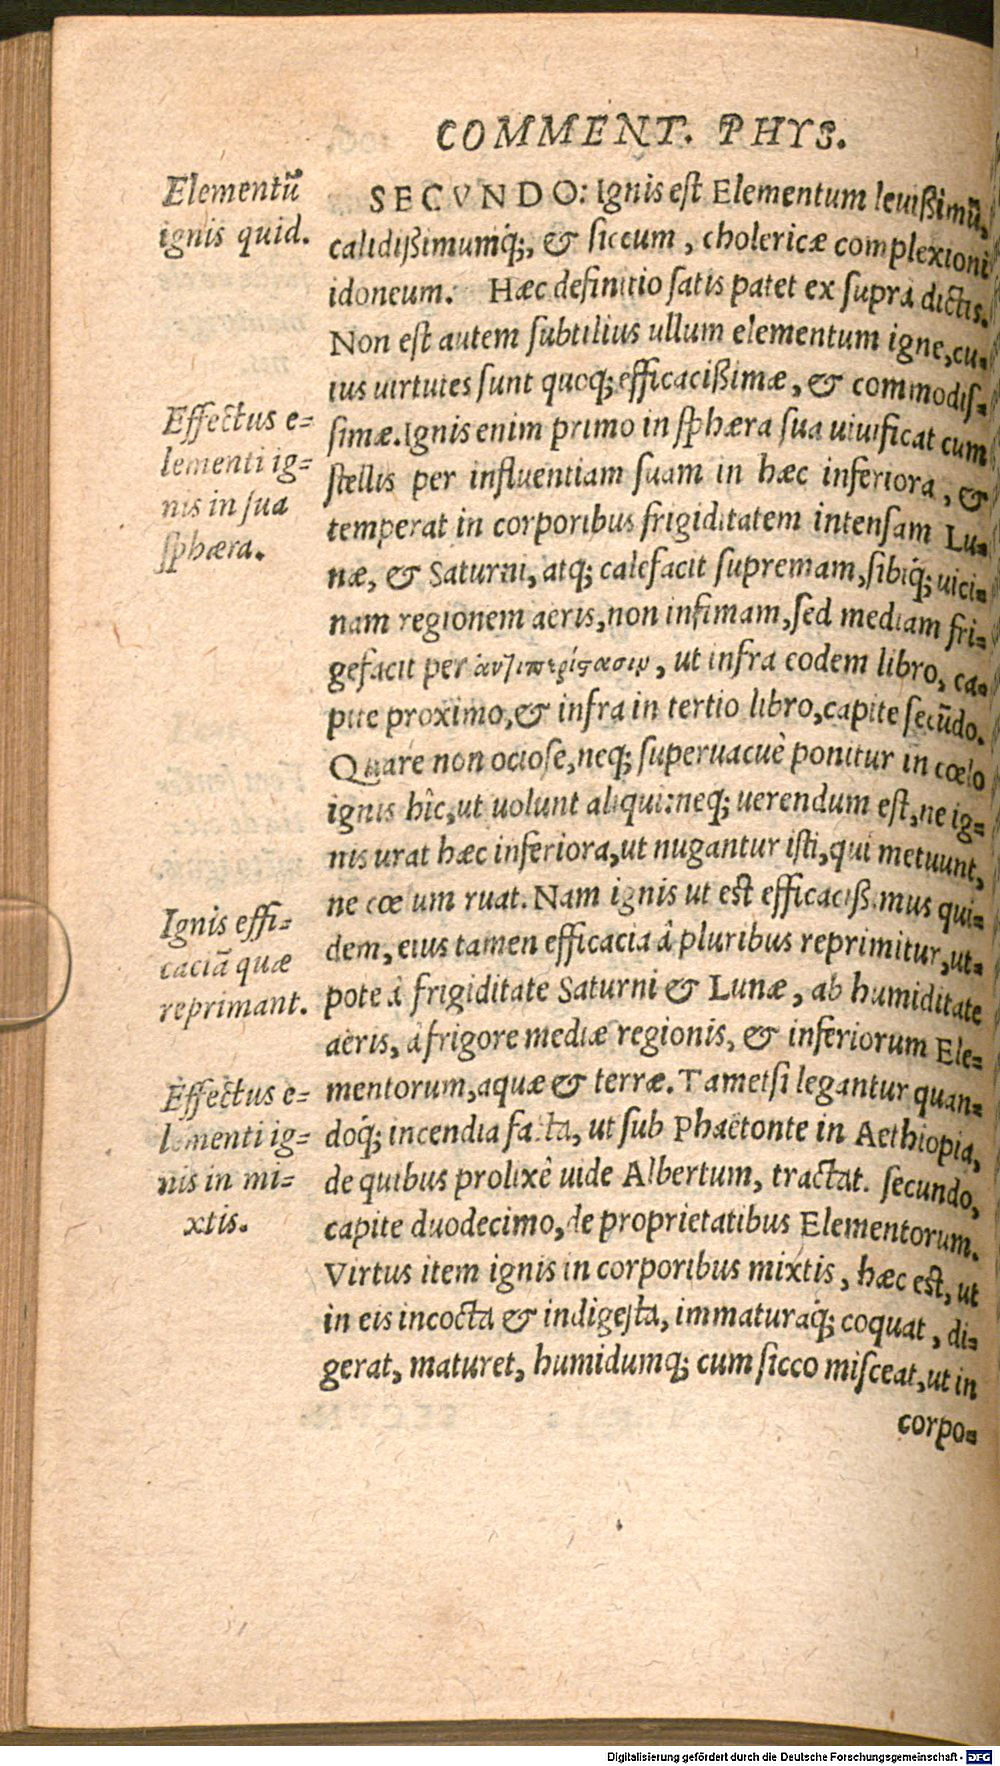 COMMENT. PHYS.
Elementũ
ignis quid.
SECVNDO: Ignis est Elementum leuißimũ,
calidißimumq́;, & siccum, cholericæ complexioni
idoneum. Hæc definitio satis patet ex supra dictis.
Non est autem subtilius ullum elementum igne, cu-
ius uirtutes sunt quoq; efficacißimæ, & commodis-
simæ. Ignis enim primo in sphæra sua uiuificat cum
stellis per influentiam suam in hæc inferiora, &
temperat in corporibus frigiditatem intensam Lu-
næ, & Saturni, atq; calefacit supremam, sibiq́; uici-
nam regionem aeris, non infimam, sed mediam fri-
gefacit per ἀντιπερίστασιν, ut infra eodem libro, ca-
pite proximo, & infra in tertio libro, capite secũdo.
Quare non ociose, neq; superuacuè ponitur in cœlo
ignis hîc, ut uolunt aliqui: neq; uerendum est, ne ig-
nis urat hæc inferiora, ut nugantur isti, qui metuunt,
ne cœlum ruat. Nam ignis ut est efficacißimus qui-
dem, eius tamen efficacia à pluribus reprimitur, ut-
pote à frigiditate Saturni & Lunæ, ab humiditate
aeris, à frigore mediæ regionis, & inferiorum Ele-
mentorum, aquæ & terræ. Tametsi legantur quan-
doq́; incendia facta, ut sub Phaëtonte in Aethiopia,
de quibus prolixè uide Albertum, tractat. secundo,
capite duodecimo, de proprietatibus Elementorum.
Virtus item ignis in corporibus mixtis, hæc est, ut
in eis incocta & indigesta, immaturaq́; coquat, di-
gerat, maturet, humidumq; cum sicco misceat, ut in
corpo-
Effectus e-
lementi ig-
nis in sua
sphæra.
Ignis effi-
caciã quæ
reprimant.
Effectus e-
lementi ig-
nis in mi-
xtis.
Digitalisierung gefördert durch die Deutsche Forschungsgemeinschaft - DFG